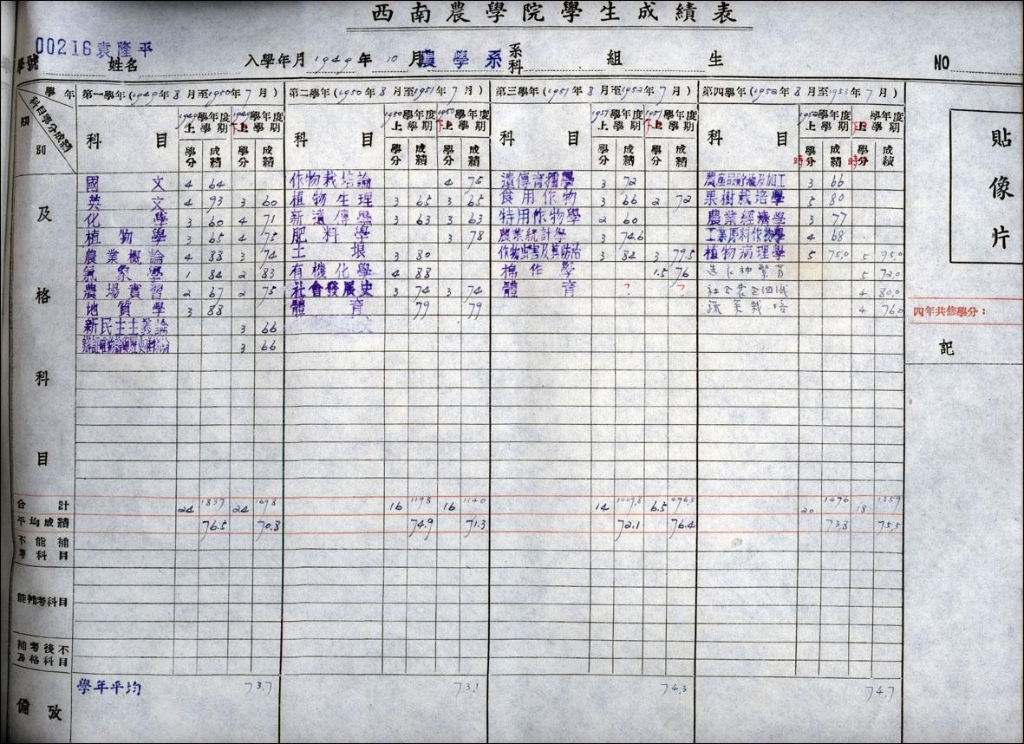 西南農學院學生成績表
00216 袁隆平
學號 姓名 入學年月 1949年10月 農學系 系科 組 生 NO
學年 第一學年(1949年8月至1950年7月) 第二學年(1950年8月至1951年7月) 第三學年(1951年8月至1952年7月) 第四學年(1952年8月至1953年7月)
科目學分成績
類別 科目 上學期 下學期 年度 科目 上學期 學期 年度 科目 上學期 下學期 年度 科目 上學期 下學期 年度
學分 成績 學分 成績 學分 成績 學分 成績 學分 成績 學分 成績 時 學分 成績 時 學分 成績
貼像片
及格科目
國文 4 64 作物栽培論 4 75 遺傳育種學 3 72 農產品貯藏及加工 3 66
英文 4 93 3 60 植物生理 3 65 3 65 食用作物 3 66 2 72 果樹栽培學 5 80
化學 3 60 4 71 新遺傳學 3 63 3 63 特用作物學 2 60 農業經濟學 3 77
植物學 3 65 4 75 肥料學 3 78 農業統計學 3 74.6 工業原料作物學 4 68
農業概論 4 88 3 74 土壤 3 80 作物虫害及其防治 3 84 3 79.5 植物病理學 5 75.0 5 75.0
氣象學 1 84 2 83 有機化學 4 88 棉作學 1.5 76 5 72.0
農場實習 2 67 2 75 社會發展史 3 74 3 74 體育 ? ? 4 80.0
地質學 3 88 體育 79 79 蔬菜栽培 4 76.0
新民主主義論 3 66
3 66
四年共修學分：
記
合計 24 1837 24 1698 16 1198 16 1140 14 6.5 20 1476 18 1359
平均成績 76.5 70.8 74.9 71.3 72.1 76.4 73.8 75.5
不能補考科目
能補考科目
補考後不及格科目
備攷 學年平均 73.7 73.1 74.3 74.7